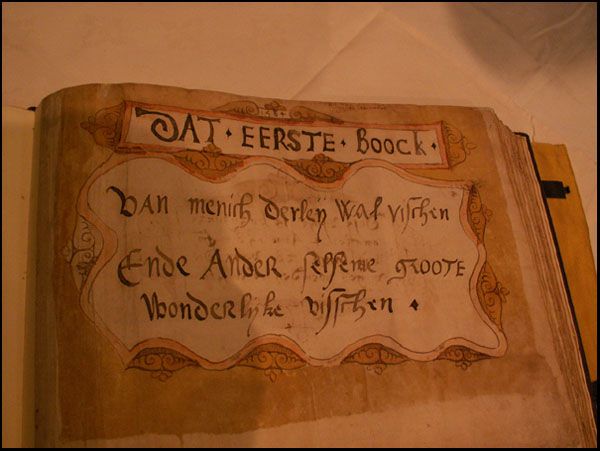 DAT · EERSTE · Boock ·
VAN menich derley Walvisschen
Ende Ander selseme groote
Wonderlyke visschen